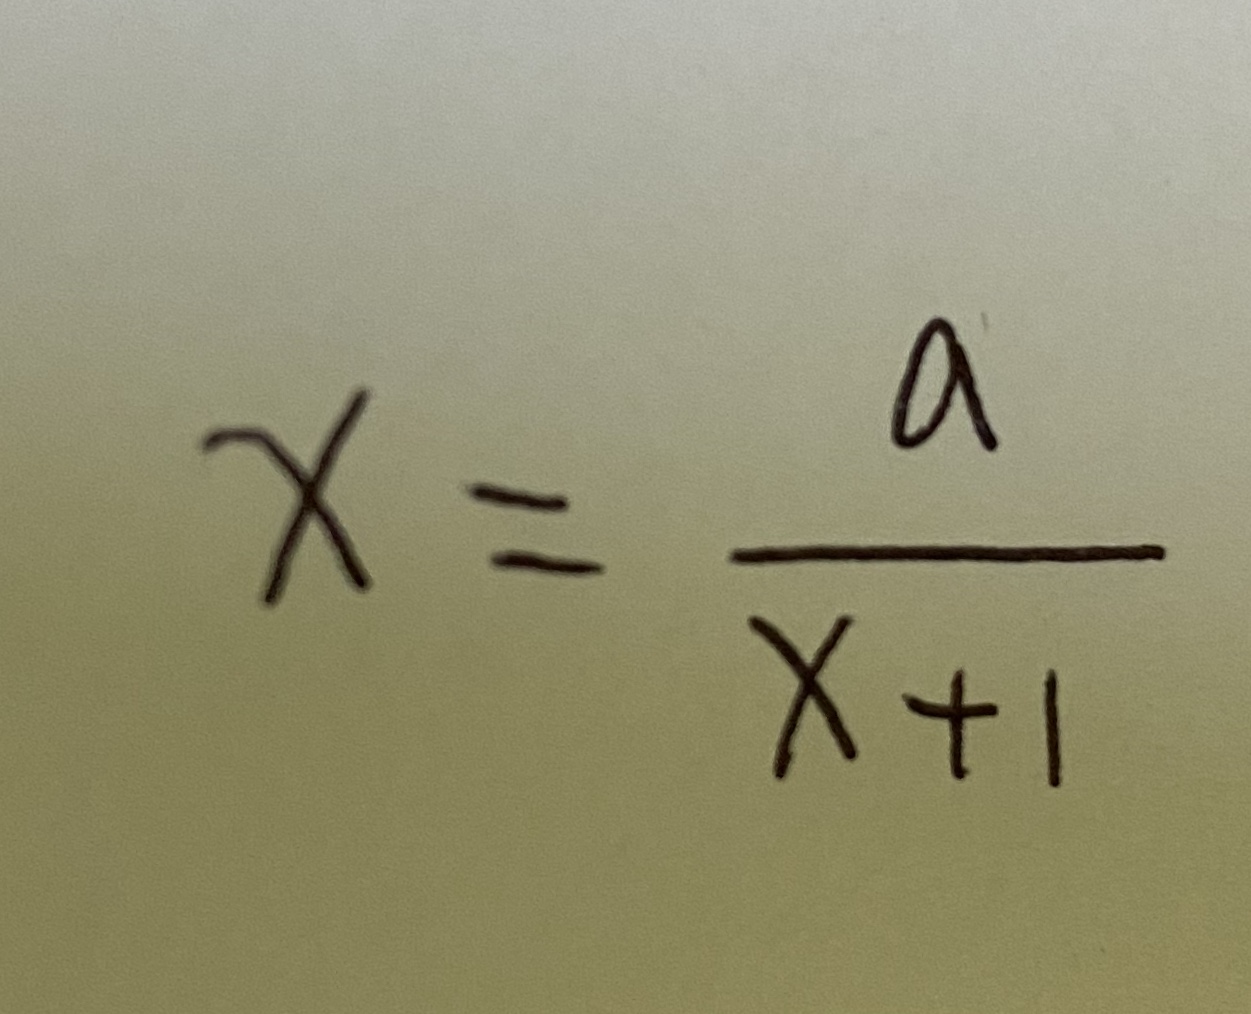 x = a / (x + 1)